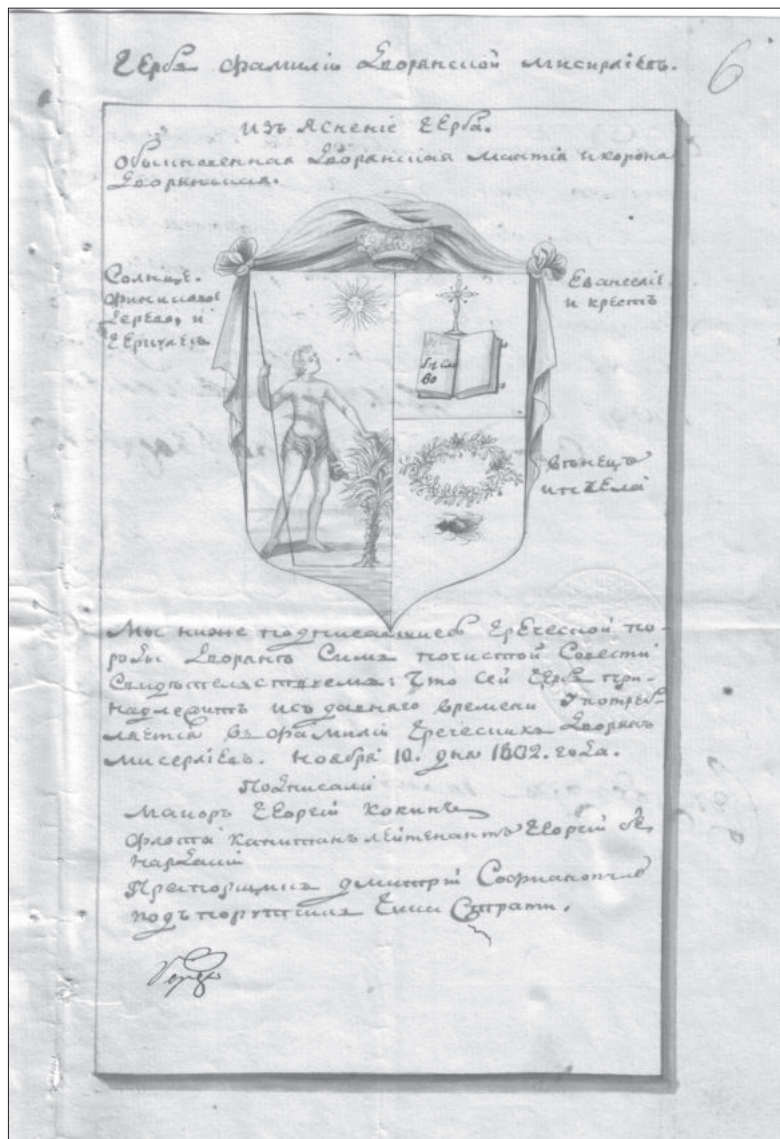 6
Герба фамиліи Дворянской Мисирліевъ.
изъ Ясненіе Герба.
Обыкновенная Дворянская Мантія и корона
Дворянская.
Солнце.
финиковое
дерево, и
Евангеліе
и крестъ
вѣнецъ
и пчела
Мы ниже подписавшиесь Греческой по-
роды Дворянъ Симъ почистой Совести
Свидѣтельствуемъ: Что Сей Гербъ при-
надлежитъ изъ давнего времени Употреб-
ляется въ фамиліи Греческихъ Дворянъ
Мисерліевъ. Ноября 10. дня 1802. года.
Подписали
Маиоръ Георгій Кокинъ
Флота Капитанъ лейтенантъ Георгій
Прапорщикъ Дмитрій
подъ порутчикъ Страти.